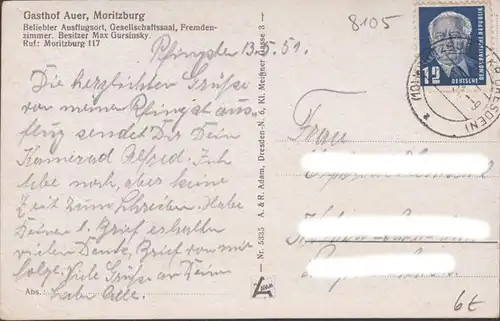 Gasthof Auer, Moritzburg
Beliebter Ausflugsort, Gesellschaftssaal, Fremden-
zimmer. Besitzer Max Gursinsky.
Ruf: Moritzburg 117
8105
Pfingsten 13.5.51.
Die herzlichsten Grüße
von meinen Pfingstaus-
flug sendet Dir Dein
Kamerad Alfred. Ich
lebe noch, aber keine
Zeit zum Schreiben. Habe
Deinen l. Brief erhalten
vielen Dank, Brief von mir
folgt. Viele Grüße an Deine
Abs.: liebe Alle.
Nr. 5335 A. & R. Adam, Dresden-N. 6, Kl. Meißner Gasse 3
ADAM
Frau
12
DEUTSCHE
DEMOKRATISCHE REPUBLIK
6€